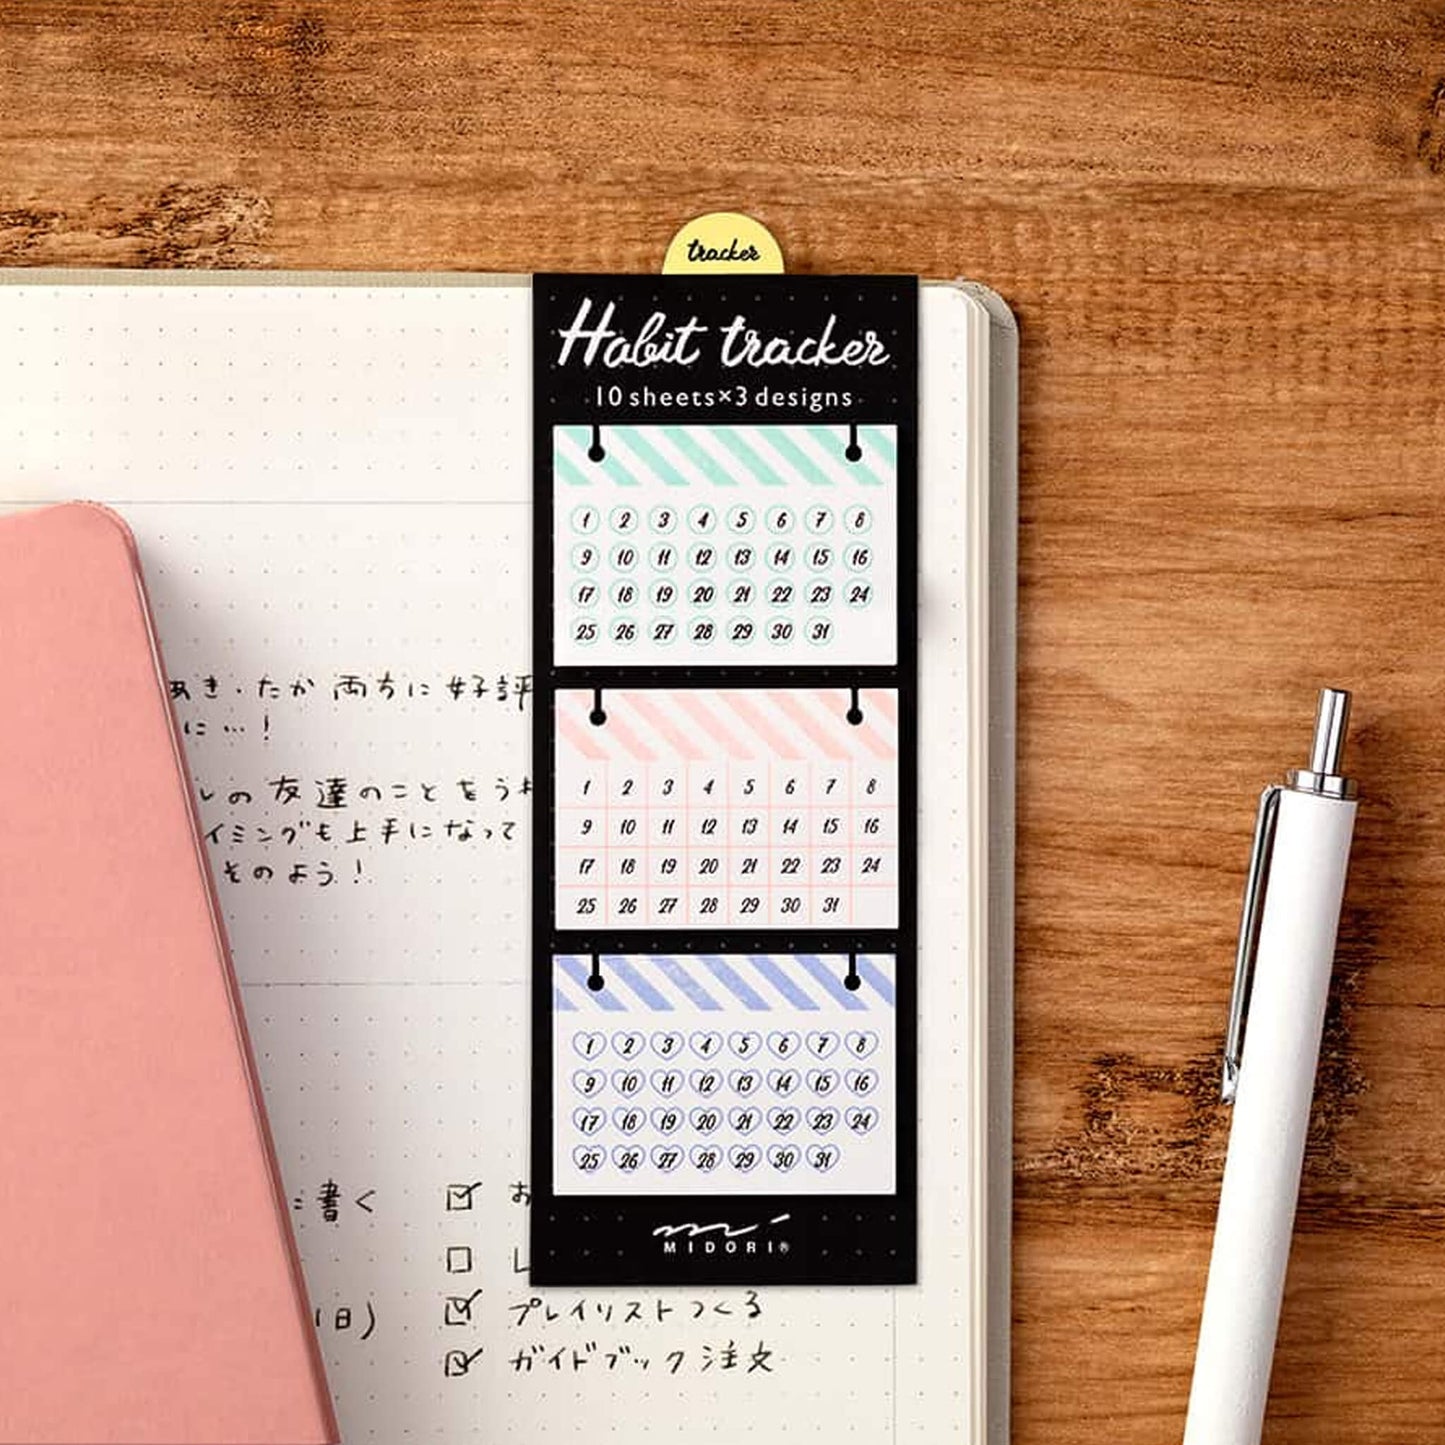 tracker
Habit tracker
10 sheets×3 designs
1 2 3 4 5 6 7 8
9 10 11 12 13 14 15 16
17 18 19 20 21 22 23 24
25 26 27 28 29 30 31
1 2 3 4 5 6 7 8
9 10 11 12 13 14 15 16
17 18 19 20 21 22 23 24
25 26 27 28 29 30 31
1 2 3 4 5 6 7 8
9 10 11 12 13 14 15 16
17 18 19 20 21 22 23 24
25 26 27 28 29 30 31
MIDORI®
あき・たか 両方に 好評
に…!
の友達のことをう
イミングも上手になって
そのよう!
書く
お
し
(日)
プレイリストつくる
ガイドブック注文